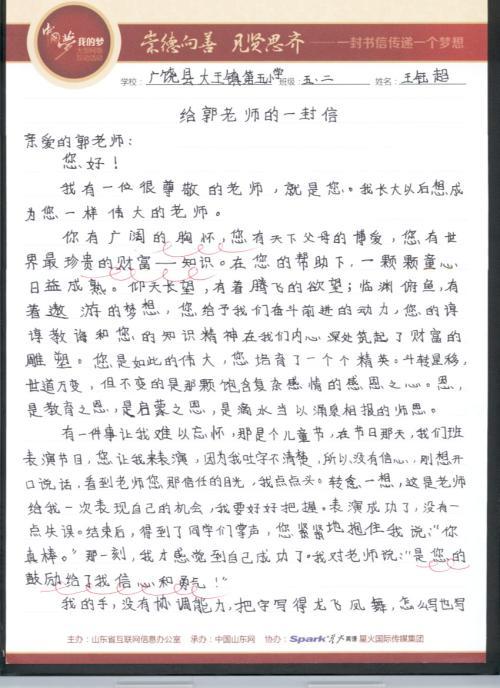 中国梦 我的梦
崇德向善 见贤思齐 一封书信传递一个梦想
学校：广饶县大王镇第五小学 班级：五、二 姓名：王钰超
给郭老师的一封信
亲爱的郭老师：
您好！
我有一位很尊敬的老师，就是您。我长大以后想成
为您一样伟大的老师。
你有广阔的胸怀，您有天下父母的博爱，您有世
界最珍贵的财富——知识。在您的帮助下，一颗颗童心
日益成熟。仰天长望，有着腾飞的欲望；临渊俯鱼，有
着遨游的梦想，您给予我们奋斗前进的动力，您的谆
谆教诲和您的知识精神在我们内心深处筑起了财富的
雕塑。您是如此的伟大，您培育了一个个精英。斗转星移，
世道万变，但不变的是那颗饱含复杂感情的感恩之心。恩，
是教育之恩，是启蒙之恩，是滴水当以涌泉相报的师恩。
有一件事让我难以忘怀，那是个儿童节，在节日那天，我们班
表演节目，您让我来表演，因为我吐字不清楚，所以没有信心，刚想开
口说话，看到老师您那信任的目光，我点点头。转念一想，这是老师
给我一次表现自己的机会，我要好好把握。表演成功了，没有一
点失误。结束后，得到了同学们掌声，您紧紧地抱住我说：“你
真棒。”那一刻，我才感觉到自己成功了。我对老师说：“是您的
鼓励给了我信心和勇气！”
我的手，没有协调能力，把字写得龙飞凤舞，怎么写也写
主办：山东省互联网信息办公室 承办：中国山东网 协办：Spark 星火英语 星火国际传媒集团